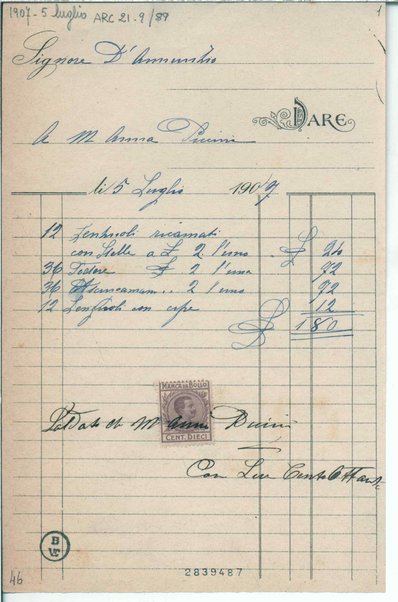 1907 - 5 luglio ARC 21.9/89
1
Signore D'Annunzio
DARE
A M Anna Pucini
li 5 Luglio 1907
12 Lenzuoli ricamati
con Stelle a £ 2 l'uno . £ 24
36 Federe £ 2 l'una 72
36 Asciucamani . . 2 l'uno 72
12 Lenzuoli con 12
£ 180
MARCA DA BOLLO
CENT. DIECI
Saldato da M Anna Pucini
Con Lire Cento Ottanta
B
46
2839487